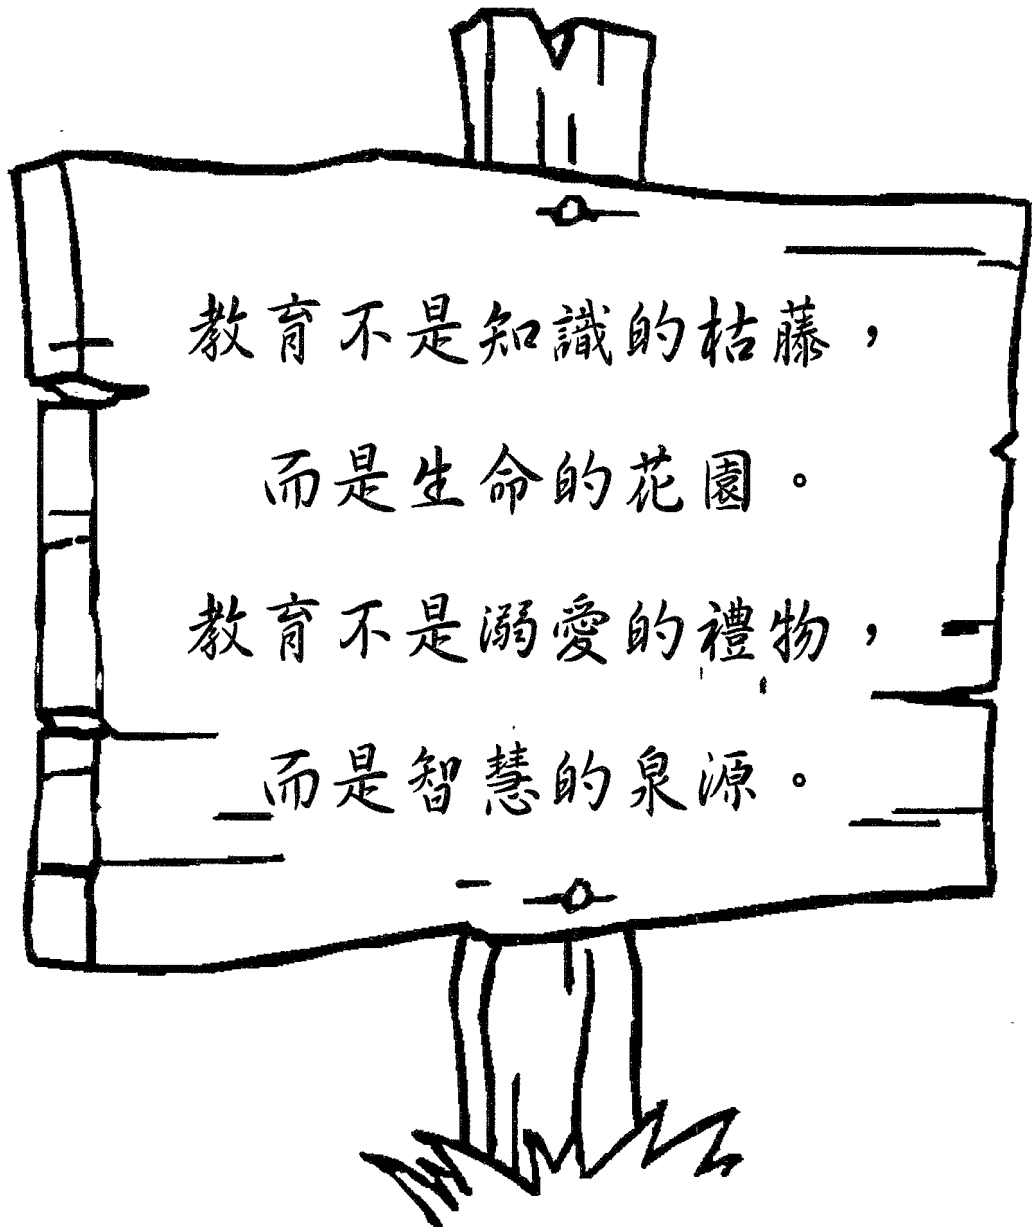 教育不是知識的枯藤，
而是生命的花園。
教育不是溺愛的禮物，
而是智慧的泉源。